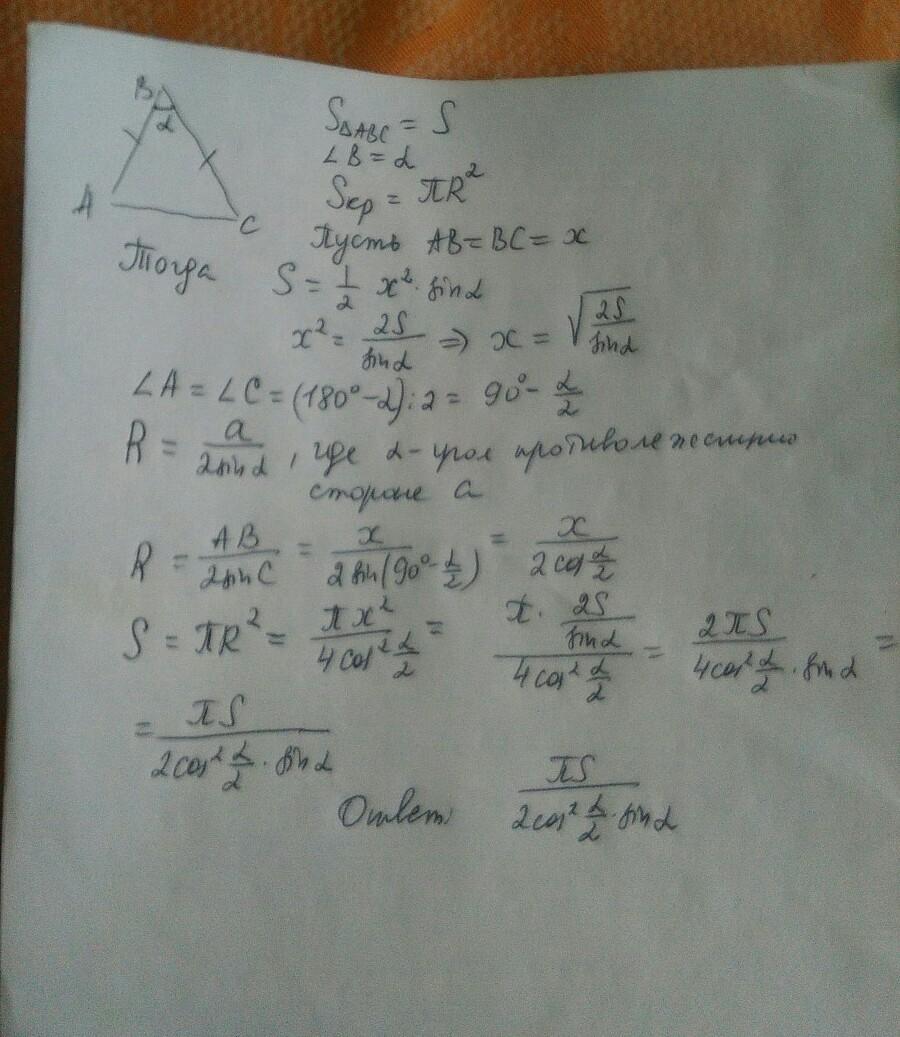 B
α
A
C
S△ABC = S
∠B = α
Sкр = πR²
Пусть AB = BC = x
Тогда S = 1/2 x² · sinα
x² = 2S/sinα ⇒ x = √(2S/sinα)
∠A = ∠C = (180° - α) : 2 = 90° - α/2
R = a/(2sinα), где α - угол противолежащий
стороне a
R = AB/(2sinC) = x/(2sin(90° - α/2)) = x/(2cos α/2)
S = πR² = πx²/(4cos² α/2) = (π · 2S/sinα)/(4cos² α/2) = 2πS/(4cos² α/2 · sinα) =
= πS/(2cos² α/2 · sinα)
Ответ: πS/(2cos² α/2 · sinα)